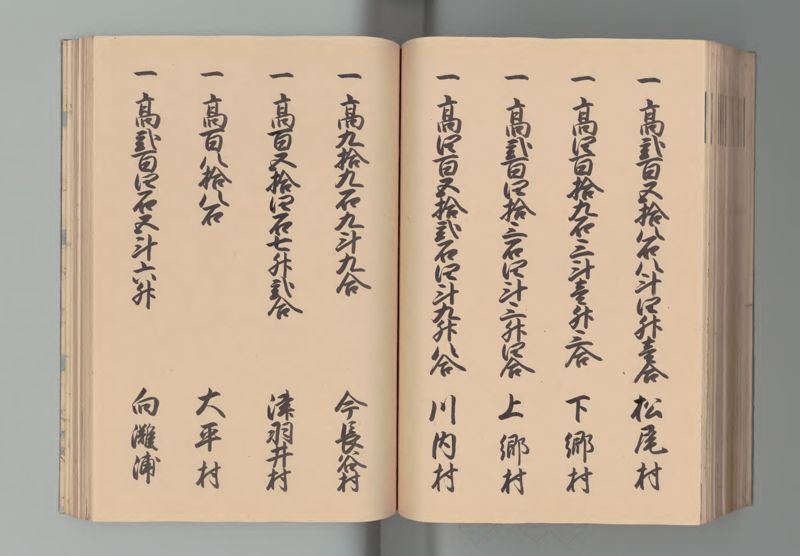 一 高弐百五拾八石八斗四升壱合 松尾村
一 高四百拾九石三斗壱升三合 下郷村
一 高弐百四拾三石四斗三升四合 上郷村
一 高四百五拾弐石四斗九升八合 川内村
一 高九拾九石九斗九合 今長谷村
一 高百五拾四石七升弐合 津羽井村
一 高百八拾八石 大平村
一 高弐百四石五斗六升 向灘浦